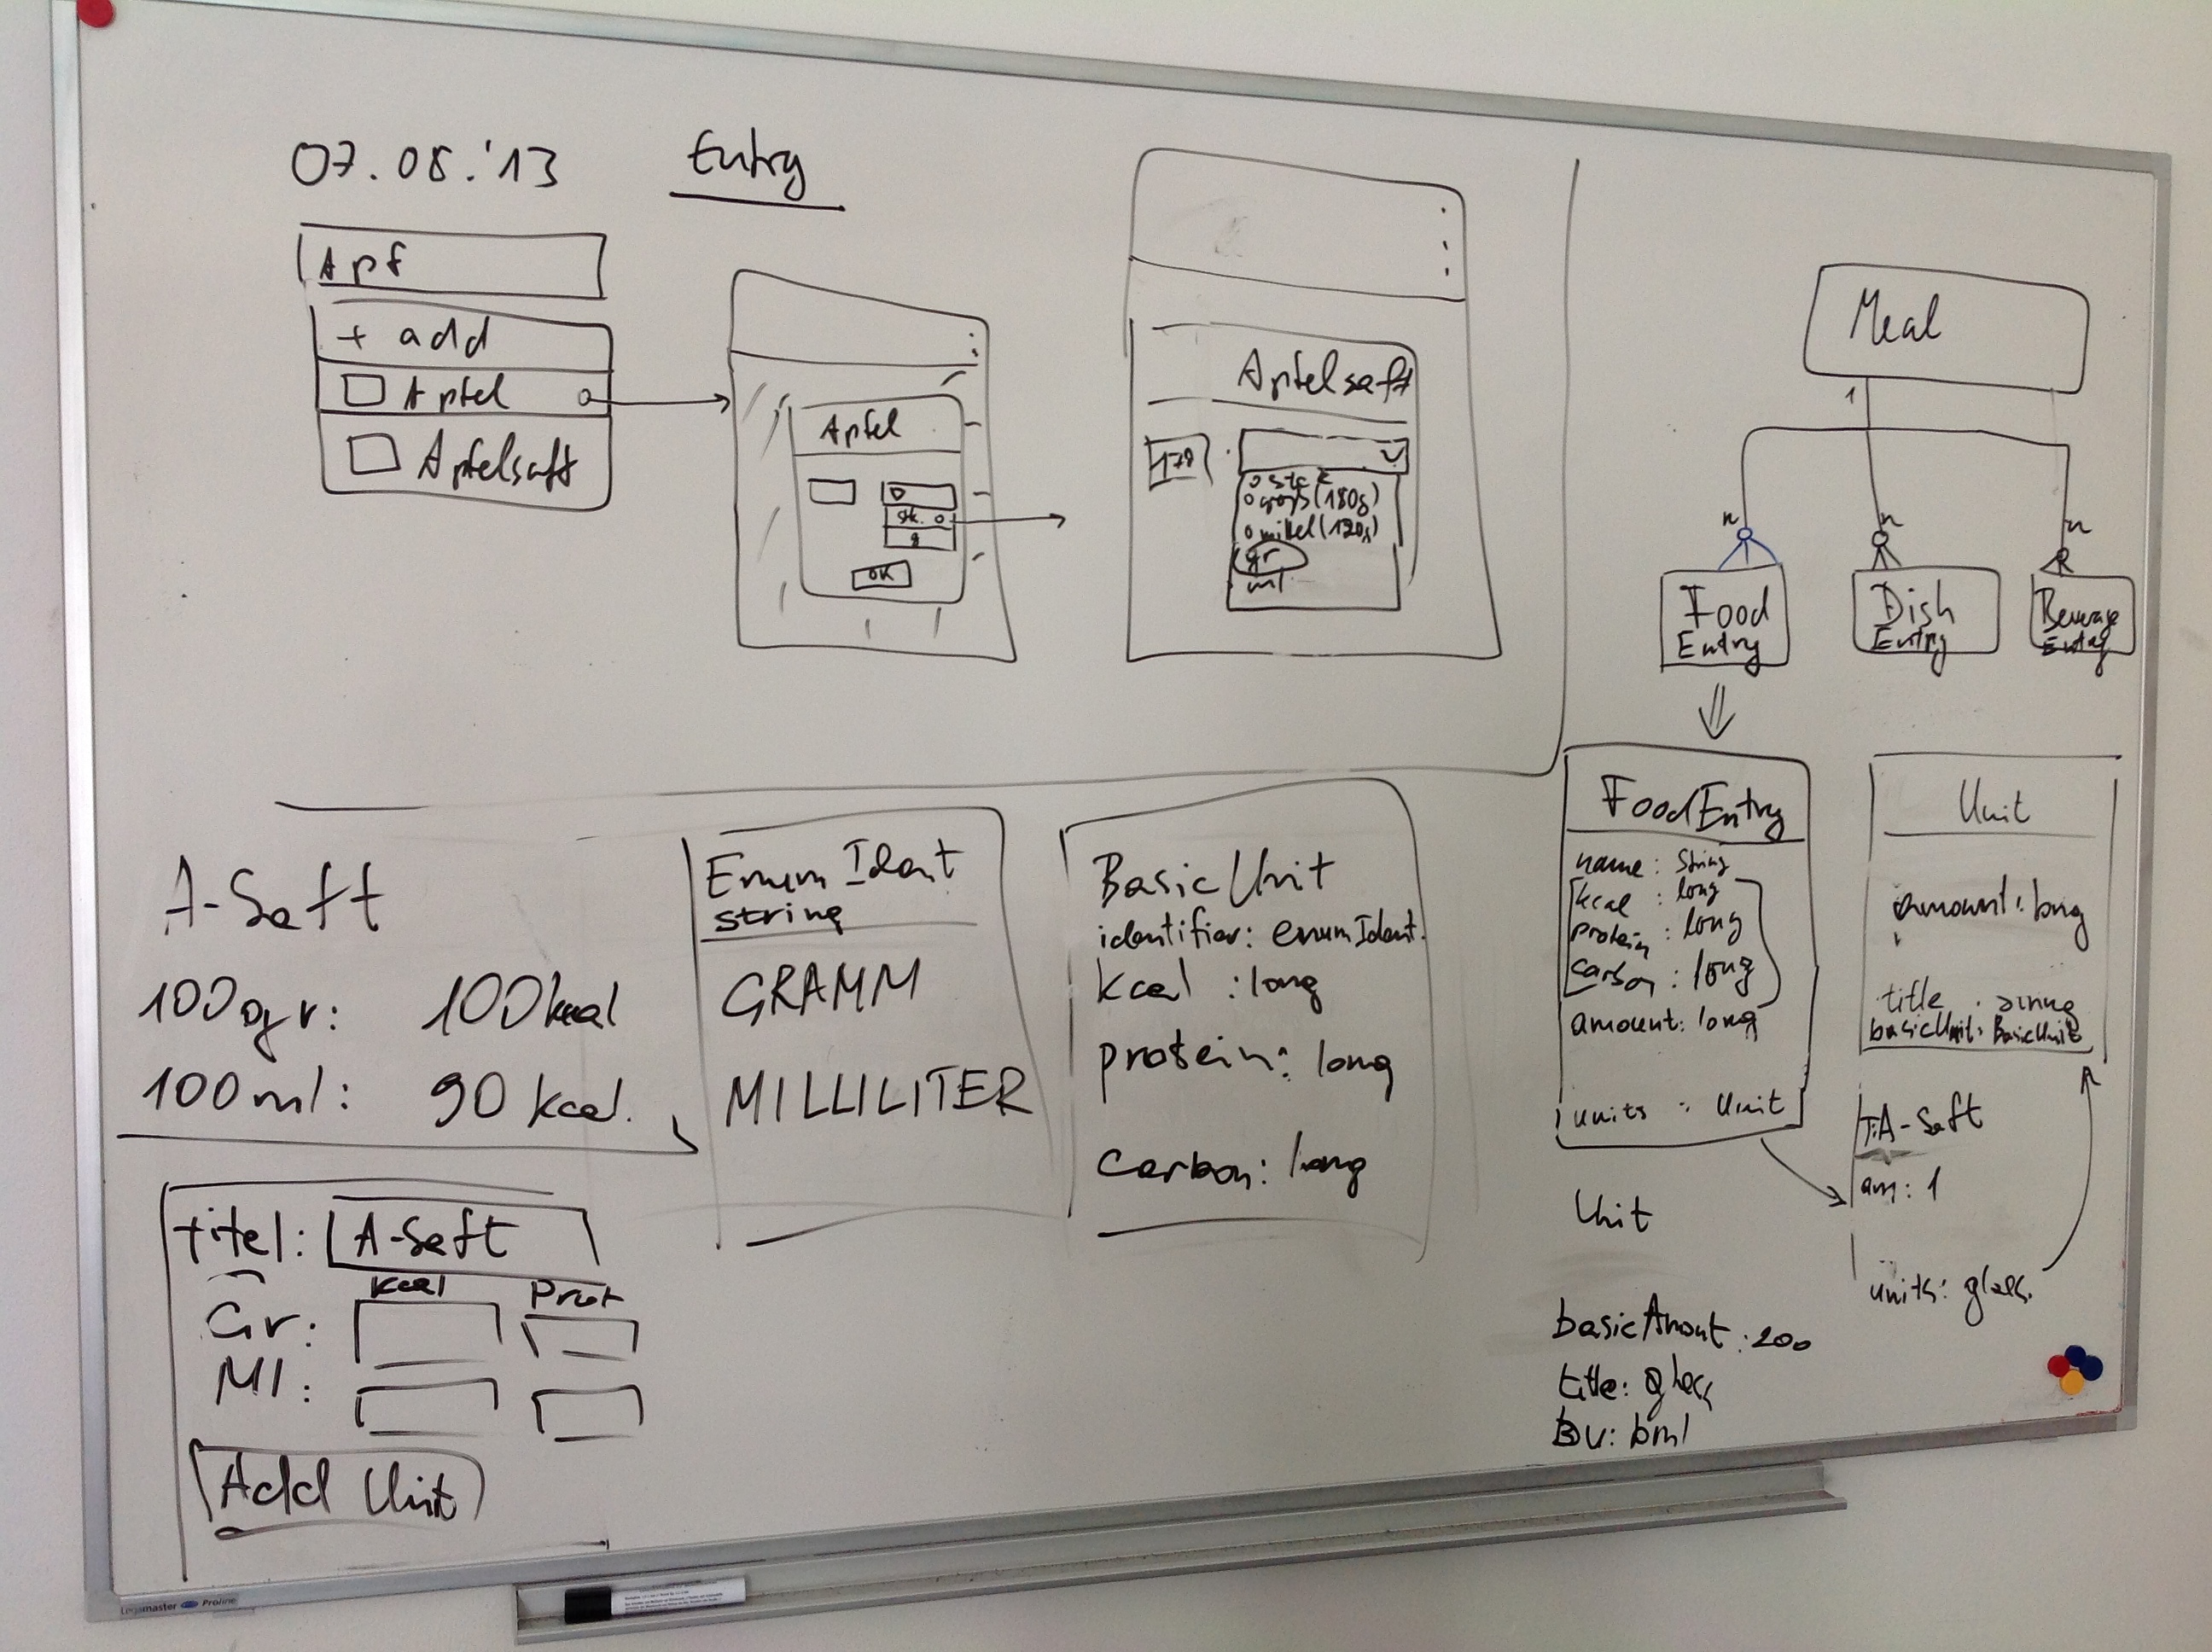 07.08.'13
Entry
Apf
+ add
Apfel
Apfelsaft
Apfel
Stk.
g
OK
Apfelsaft
170
o Stck
o gross (180g)
o mittel (120g)
gr
ml
Meal
1
n
n
n
Food
Entry
Dish
Entry
Beverage
Entry
A-Saft
100gr: 100kcal
100ml: 90 kcal.
Enum Ident
string
GRAMM
MILLILITER
BasicUnit
identifier: enumIdent.
kcal : long
protein: long
carbon: long
FoodEntry
name: String
kcal : long
protein : long
carbon : long
amount: long
units : Unit
Unit
amount: long
title : string
basicUnit: BasicUnit
T: A-Saft
am: 1
units: glass.
Unit
basicAmout : 200
title: glass
BU: bml
titel: A-Saft
kcal Prot
Gr:
Ml:
Add Unit
Legamaster Proline